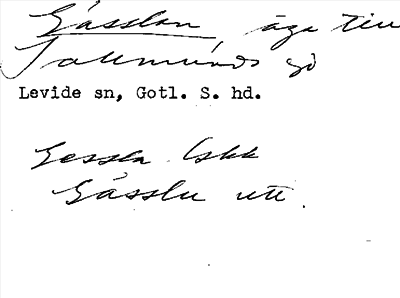 Gässlan, äga till
Tallmunds gd
Levide sn, Gotl. S. hd.
Gessla Lskk
Gässlu utt.